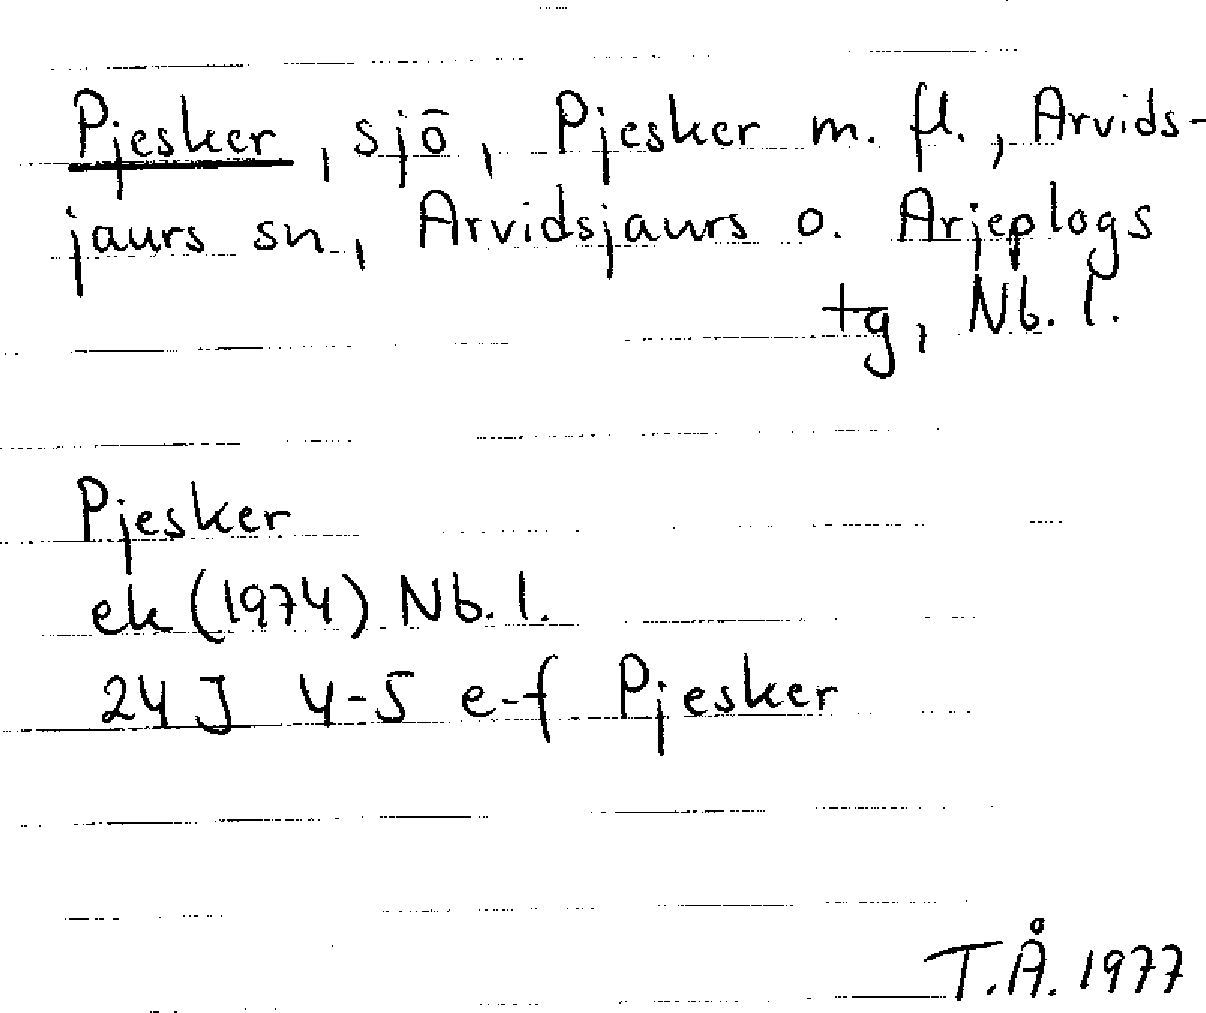 Pjesker, sjö, Pjesker m. fl., Arvids-
jaurs sn, Arvidsjaurs o. Arjeplogs
tg, Nb. l.
Pjesker
ek (1974) Nb. l.
24 J 4-5 e-f Pjesker
T.Å. 1977